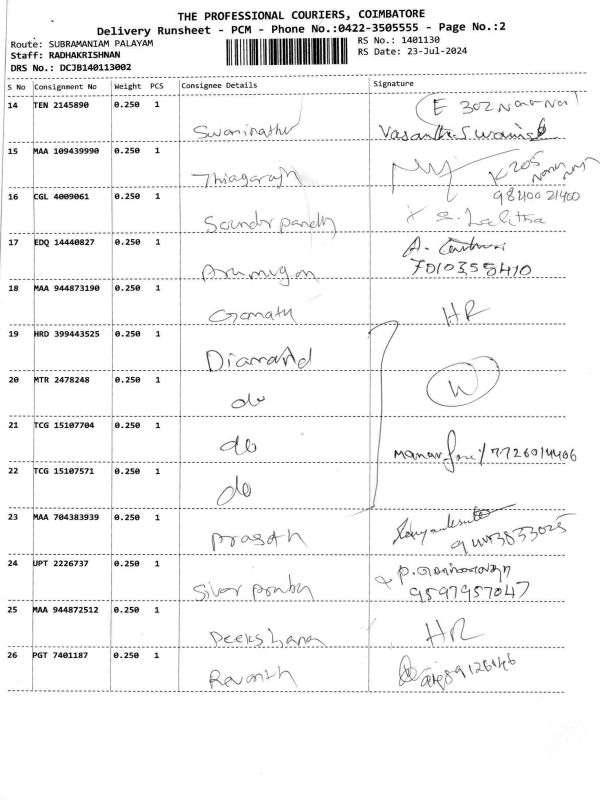 THE PROFESSIONAL COURIERS, COIMBATORE
Delivery Runsheet - PCM - Phone No.:0422-3505555 - Page No.:2
Route: SUBRAMANIAM PALAYAM
RS No.: 1401130
Staff: RADHAKRISHNAN
RS Date: 23-Jul-2024
DRS No.: DCJB140113002
S No Consignment No Weight PCS Consignee Details Signature
14 TEN 2145890 0.250 1
E 302
15 MAA 109439990 0.250 1
K 205
16 CGL 4009061 0.250 1
S. Lalitha
17 EDQ 14440827 0.250 1
7010358410
18 MAA 944873190 0.250 1
Gomathy HR
19 HRD 399443525 0.250 1
Diamond
20 MTR 2478248 0.250 1
do W
21 TCG 15107704 0.250 1
do
22 TCG 15107571 0.250 1
do
23 MAA 704383939 0.250 1
Prasath
24 UPT 2226737 0.250 1
9597957047
25 MAA 944872512 0.250 1
Deekshana HR
26 PGT 7401187 0.250 1
Revanth